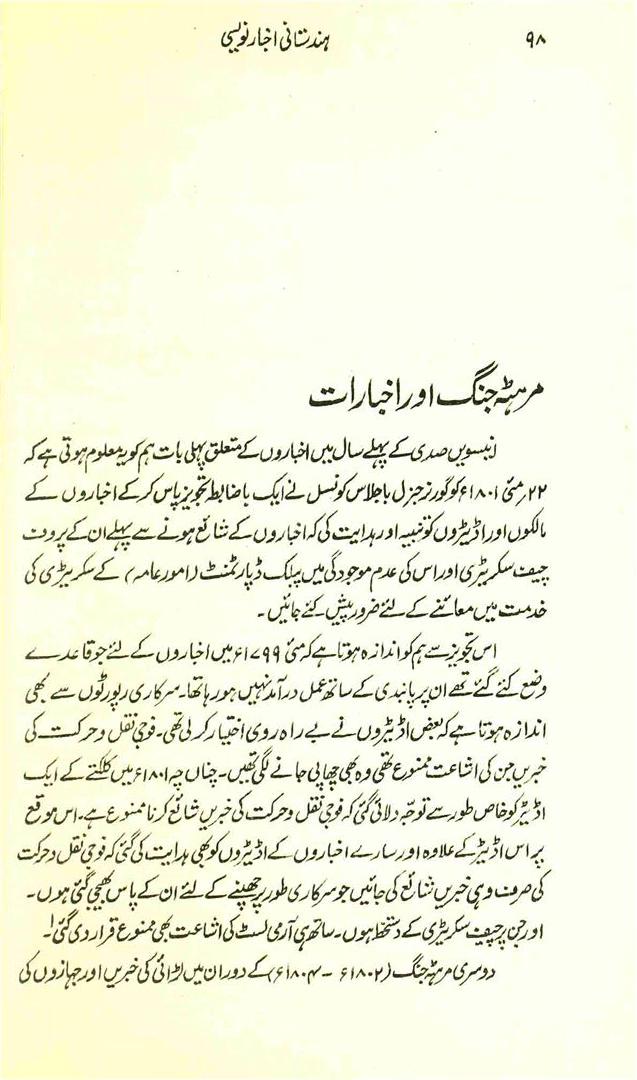 ۹۸ ہندستانی اخبار نویسی
مرہٹہ جنگ اور اخبارات
انیسویں صدی کے پہلے سال میں اخباروں کے متعلق پہلی بات ہم کو یہ معلوم ہوتی ہے کہ
۲۲؍ مئی ۱۸۰۱ء کو گورنر جنرل باجلاس کونسل نے ایک باضابطہ تجویز پاس کر کے اخباروں کے
مالکوں اور اڈیٹروں کو تنبیہ اور ہدایت کی کہ اخباروں کے شائع ہونے سے پہلے ان کے پروف
چیف سکریٹری اور اس کی عدم موجودگی میں پبلک ڈپارٹمنٹ (امور عامہ) کے سکریٹری کی
خدمت میں معائنے کے لئے ضرور پیش کئے جائیں۔
اس تجویز سے ہم کو اندازہ ہوتا ہے کہ مئی ۱۷۹۹ء میں اخباروں کے لئے جو قاعدے
وضع کئے گئے تھے ان پر پابندی کے ساتھ عمل درآمد نہیں ہو رہا تھا۔ سرکاری رپورٹوں سے بھی
اندازہ ہوتا ہے کہ بعض اڈیٹروں نے بے راہ روی اختیار کر لی تھی۔ فوجی نقل و حرکت کی
خبریں جن کی اشاعت ممنوع تھی وہ بھی چھاپی جانے لگی تھیں۔ چناں چہ ۱۸۰۱ء میں کلکتے کے ایک
اڈیٹر کو خاص طور سے توجہ دلائی گئی کہ فوجی نقل و حرکت کی خبریں شائع کرنا ممنوع ہے۔ اس موقع
پر اس اڈیٹر کے علاوہ اور سارے اخباروں کے اڈیٹروں کو بھی ہدایت کی گئی کہ فوجی نقل و حرکت
کی صرف وہی خبریں شائع کی جائیں جو سرکاری طور پر چھپنے کے لئے ان کے پاس بھیجی گئی ہوں۔
اور جن پر چیف سکریٹری کے دستخط ہوں۔ ساتھ ہی آرمی لسٹ کی اشاعت بھی ممنوع قرار دی گئی۱۔
دوسری مرہٹہ جنگ (۱۸۰۲ء - ۱۸۰۴ء) کے دوران میں لڑائی کی خبریں اور جہازوں کی